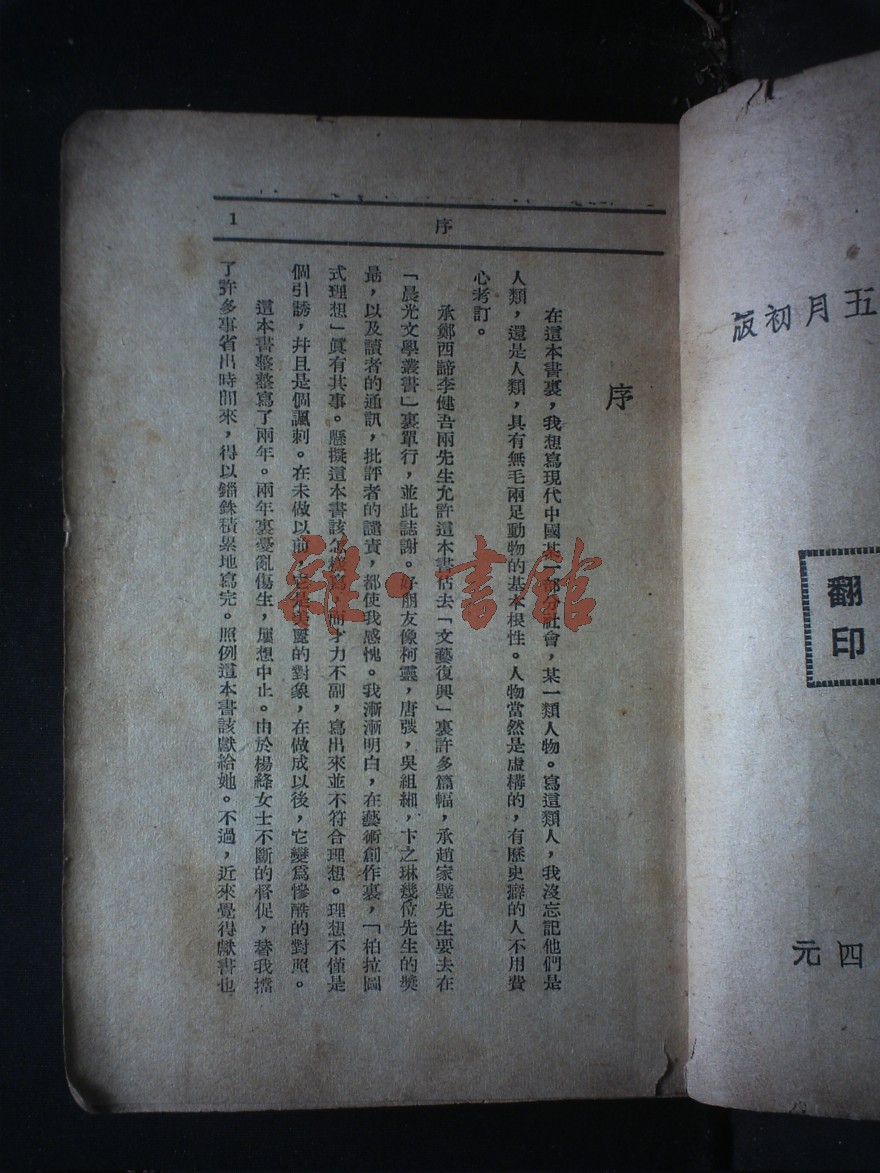 五月初版
翻印
四元
序
1
序
在這本書裏，我想寫現代中國某一部分社會，某一類人物。寫這類人，我沒忘記他們是
人類，還是人類，具有無毛兩足動物的基本根性。人物當然是虛構的，有歷史癖的人不用費
心考訂。
承鄭西諦李健吾兩先生允許這本書佔去「文藝復興」裏許多篇幅，承趙家璧先生要去在
「晨光文學叢書」裏單行，並此誌謝。好朋友像柯靈，唐弢，吳組緗，卞之琳幾位先生的獎
勗，以及讀者的通訊，批評者的譴責，都使我感愧。我漸漸明白，在藝術創作裏，「柏拉圖
式理想」眞有其事。懸擬這本書該怎樣寫，而才力不副，寫出來並不符合理想。理想不僅是
個引誘，幷且是個諷刺。在未做以前，它是美麗的對象，在做成以後，它變爲慘酷的對照。
這本書整整寫了兩年。兩年裏憂亂傷生，屢想中止。由於楊絳女士不斷的督促，替我擋
了許多事省出時間來，得以錙銖積累地寫完。照例這本書該獻給她。不過，近來覺得獻書也
雜·書館